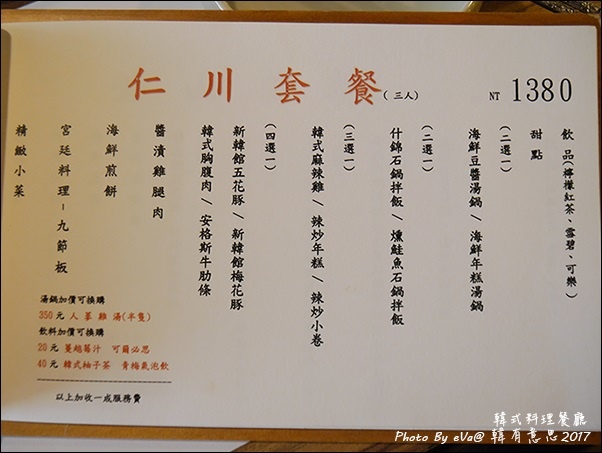 仁川套餐(三人)
NT 1380
飲品(檸檬紅茶、雪碧、可樂)
甜點
(二選一)
海鮮豆醬湯鍋/海鮮年糕湯鍋
(二選一)
什錦石鍋拌飯/燻鮭魚石鍋拌飯
(三選一)
韓式麻辣雞/辣炒年糕/辣炒小卷
(四選一)
新韓館五花豚/新韓館梅花豚
韓式胸腹肉/安格斯牛肋條
醬漬雞腿肉
海鮮煎餅
宮廷料理-九節板
精緻小菜
湯鍋加價可換購
350元 人蔘雞湯(半隻)
飲料加價可換購
20元 蔓越莓汁 可爾必思
40元 韓式柚子茶 青梅氣泡飲
以上加收一成服務費
韓式料理餐廳
Photo By eVa@ 韓有意思 2017